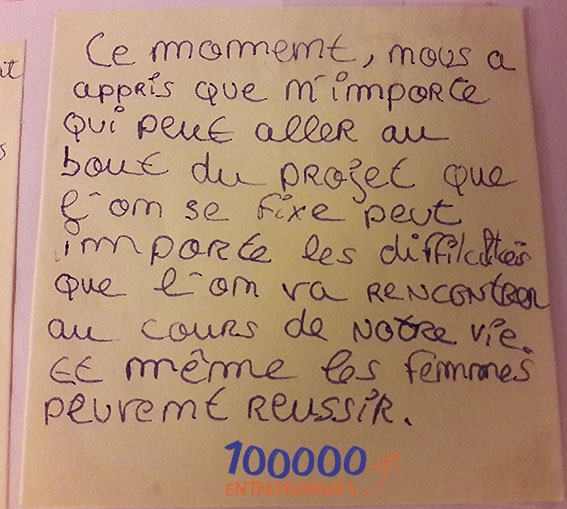 Ce moment, nous a
appris que n'importe
qui peut aller au
bout du projet que
l'on se fixe peut
importe les difficultés
que l'on va rencontrer
au cours de notre vie.
Et même les femmes
peuvent reussir.
100000
ENTREPRENEURS